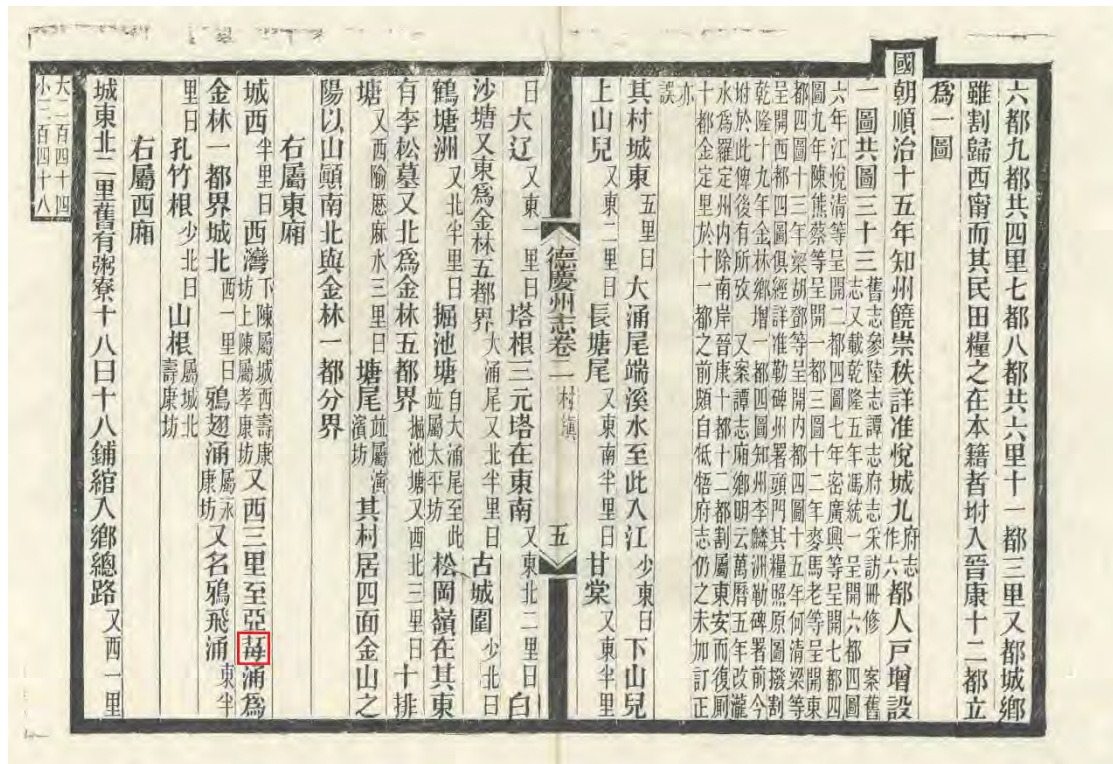 六都九都共四里七都八都共六里十一都三里又都城鄉
雖割歸西甯而其民田糧之在本籍者坿入晉康十二都立
爲一圖
國朝順治十五年知州饒崇秩詳准悅城九府志作六都人戸增設
一圖共圖三十三舊志參陸志譚志府志采訪冊修 案舊
志又載乾隆五年馮統一呈開六都四圖
六年江悅清等呈開二都四圖七年密廣興等呈開七都四
圖九年陳熊蔡等呈開一都三圖十二年麥馬老等呈開東
都四圖十三年梁胡鄧等呈開内都四圖十五年何清梁等
呈開西都四圖俱經詳准勒碑州署頭門其糧照原圖撥割
乾隆十九年金林鄉增一都四圖知州李麟洲勒碑署前今
坿於此俾後有所攷 又案譚志廂鄉明云萬曆五年改瀧
水爲羅定州内除南岸晉康十都十二都割屬東安而復厠
十都金定里於十一都之前頗自牴牾府志仍之未加訂正
亦
誤
其村城東五里曰大涌尾端溪水至此入江少東曰下山兒
上山兒又東二里曰長塘尾又東南半里曰甘棠又東半里
德慶州志卷二 村鎭 五
曰大辽又東一里曰塔根三元塔在東南又東北二里曰白
沙塘又東爲金林五都界大涌尾又北半里曰古城圍少北曰
鶴塘洲又北半里曰掘池塘自大涌尾至此竝屬太平坊松岡嶺在其東
有李松墓又北爲金林五都界掘池塘又西北三里曰十排
塘又西隃厯麻水三里曰塘尾竝屬演濱坊其村居四面金山之
陽以山顚南北與金林一都分界
右屬東廂
城西半里曰西灣下陳屬城西壽康坊上陳屬孝康坊又西三里至亞涌爲
金林一都界城北西一里曰鴉翅涌屬永康坊又名鴉飛涌東半
里曰孔竹根少北曰山根屬城北壽康坊
右屬西廂
城東北二里舊有粥寮十八曰十八鋪綰入鄉總路又西一里
大二百四十四
小二百四十八